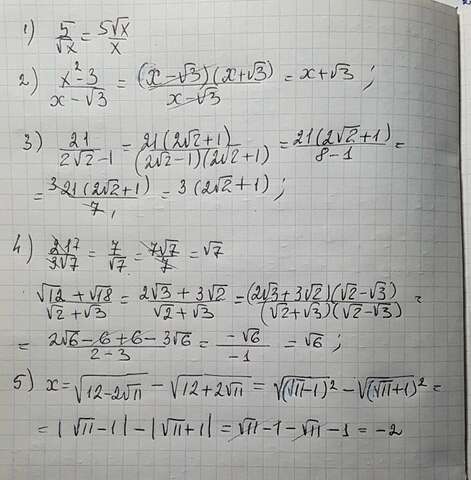 1) 5/√x = 5√x/x
2) (x²-3)/(x-√3) = (x-√3)(x+√3)/(x-√3) = x+√3 ;
3) 21/(2√2-1) = 21(2√2+1)/((2√2-1)(2√2+1)) = 21(2√2+1)/(8-1) =
= ³21(2√2+1)/7 = 3(2√2+1) ;
4) 217/3√7 = 7/√7 = 7√7/7 = √7
(√12+√18)/(√2+√3) = (2√3+3√2)/(√2+√3) = (2√3+3√2)(√2-√3)/((√2+√3)(√2-√3)) =
= (2√6-6+6-3√6)/(2-3) = -√6/-1 = √6 ;
5) x = √(12-2√11) - √(12+2√11) = √((√11-1)²) - √((√11+1)²) =
= |√11-1| - |√11+1| = √11-1-√11-1 = -2